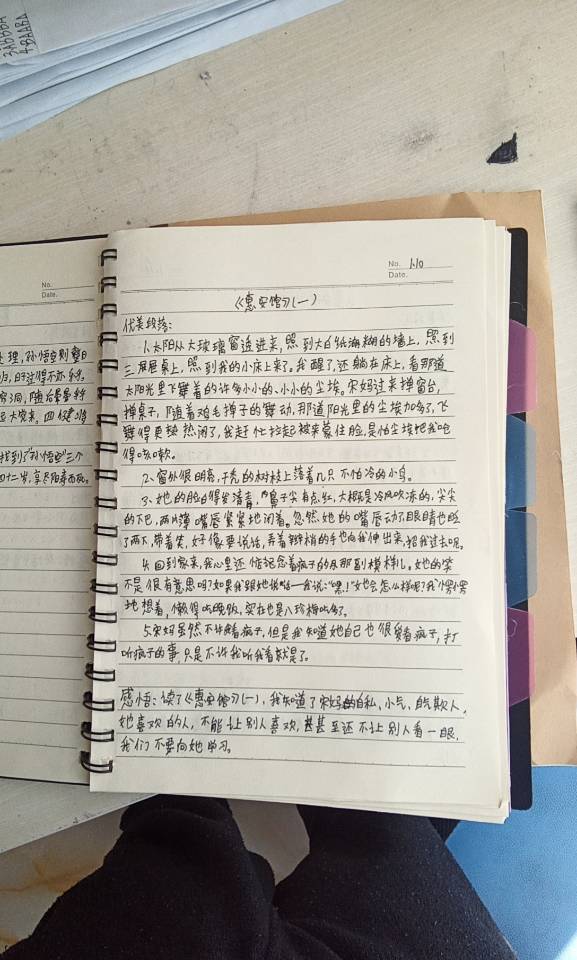 3ABBBA
4BAABA
No.
Date.
No. 1.10
Date.
《惠安馆》(一)
优美段落:
1.太阳从大玻璃窗透进来,照到大白纸糊的墙上,照到
三屉桌上,照到我的小床上来了。我醒了,还躺在床上,看那道
太阳光里飞舞着的许多小小的、小小的尘埃。宋妈过来掸窗台,
掸桌子,随着鸡毛掸子的舞动,那道阳光里的尘埃加多了,飞
舞得更热闹了,我赶忙拉起被来蒙住脸,是怕尘埃把我呛
得咳嗽。
2、窗外很明亮,干秃的树枝上落着几只不怕冷的小鸟。
3、她的脸白得发清青,鼻子尖有点红,大概是冷风吹冻的,尖尖
的下巴,两片薄嘴唇紧紧地闭着。忽然她的嘴唇动了,眼睛也眨
了两下,带着笑,好像要说话,弄着辫梢的手也向我伸出来,招我过去呢。
4.回到家来,我心里还惦记念着疯子的那副模样儿。她的笑
不是很有意思吗?如果我跟她说话—我说:“嘿!”她会怎么样呢?我愣愣
地想着,懒得吃晚饭,实在也是八珍梅吃多了。
5.宋妈虽然不许看疯子,但是我知道她自己也很爱看疯子,打
听疯子的事,只是不许我听我看就是了。
感悟:读了《惠安馆》(一),我知道了宋妈的自私,小气,自气欺人,
她喜欢的人,不能让别人喜欢,甚甚至还不让别人看一眼,
我们不要向她学习。